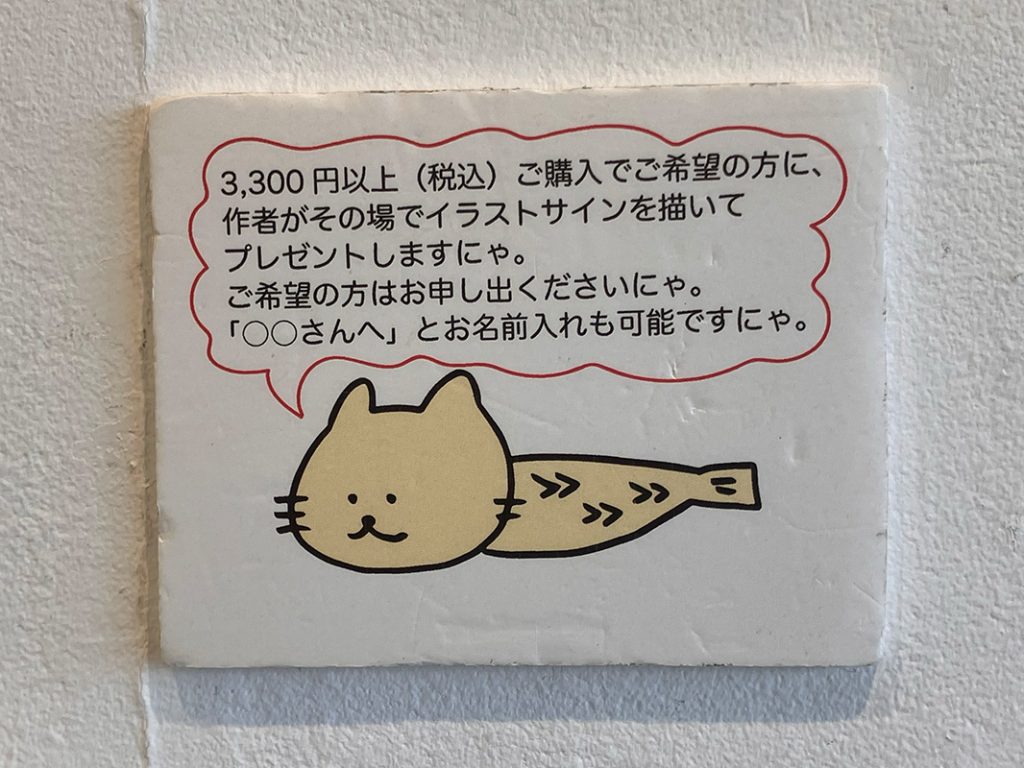 3,300 円以上（税込）ご購入でご希望の方に、
作者がその場でイラストサインを描いて
プレゼントしますにゃ。
ご希望の方はお申し出くださいにゃ。
「○○さんへ」とお名前入れも可能ですにゃ。